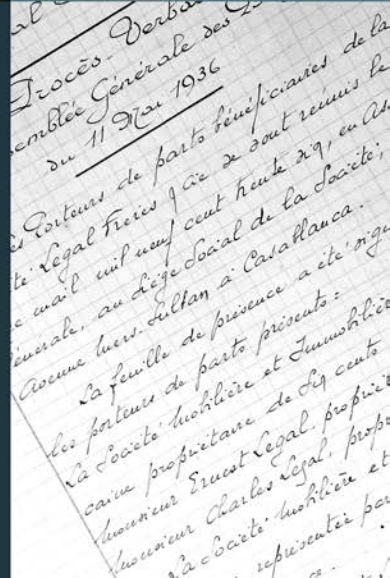 al
Procès-Verba
semblée Générale des
du 11 Mai 1936
s Porteurs de parts bénéficiaires de la
té Legal Frères & Cie se sont réunis le
ze mail mil neuf cent trente six, en As
énérale, au Siège Social de la Société,
avenue Mers-Sultan à Casablanca.
La feuille de présence a été sign
les porteurs de parts présents:
La Société Mobilière et Immobilière
caine propriétaire de six cents
Monsieur Ernest Legal, propriét
Monsieur Charles Legal, propr
La Société Mobilière et
représentée par